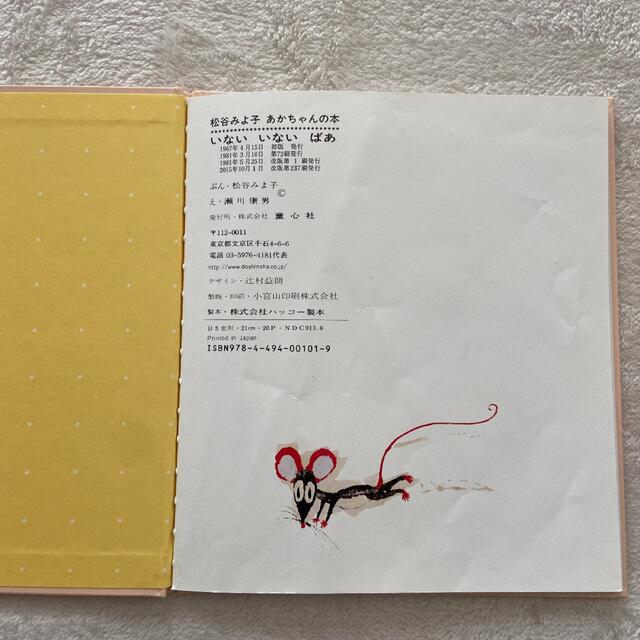 松谷みよ子 あかちゃんの本
いない いない ばあ
1967年4月15日 初版 発行
1981年3月10日 第72刷発行
1981年5月25日 改版第 1 刷発行
2015年10月1日 改版第237刷発行
ぶん・松谷みよ子
©
え・瀬川康男
発行所・株式会社 童心社
〒112-0011
東京都文京区千石4-6-6
電話 03-5976-4181代表
http://www.doshinsha.co.jp/
デザイン・辻村益朗
製版・印刷・小宮山印刷株式会社
製本・株式会社ハッコー製本
B5変形・21cm・20P・NDC913.6
Printed in Japan
ISBN978-4-494-00101-9